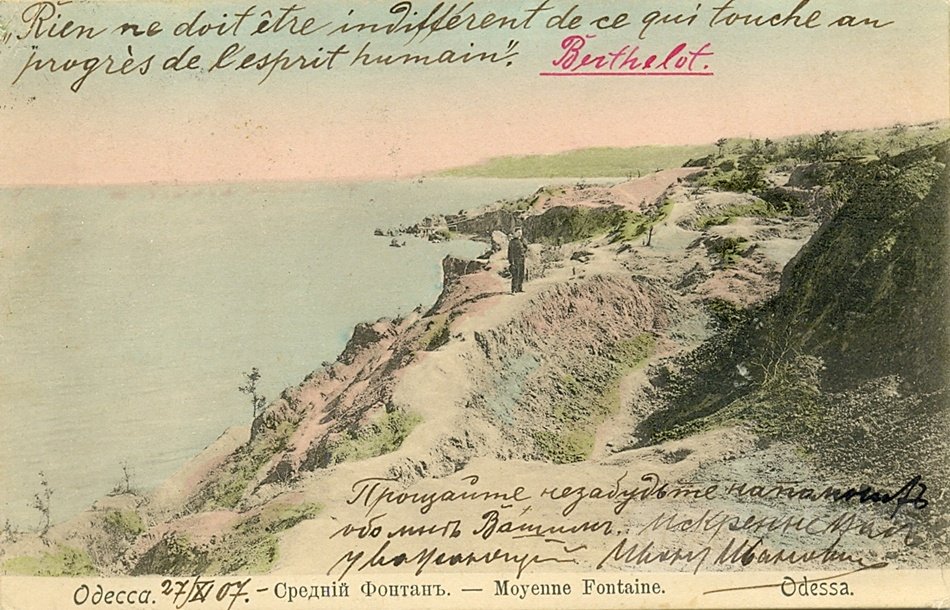 „Rien ne doit être indifférent de ce qui touche au
progrès de l'esprit humain". Berthelot.
Прощайте незабудьте
обо мнѣ искренне Вамъ
уважающій Иванъ Ивановичъ
Одесса. 27/XI 07. - Средній Фонтанъ. — Moyenne Fontaine. Odessa.